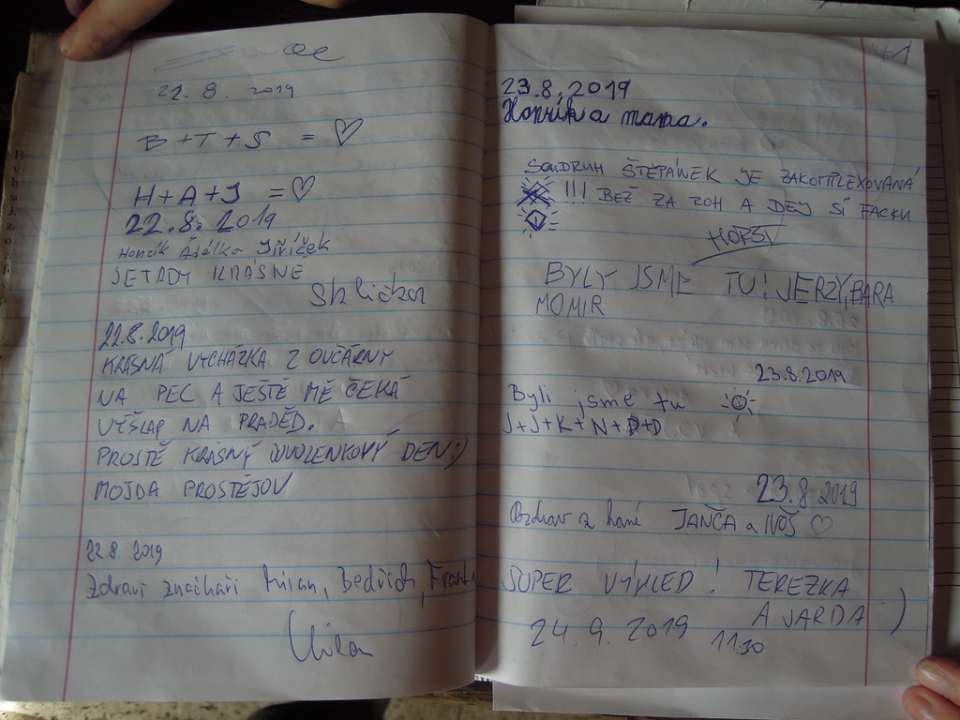 22.8. 2019
B+T+S = ♡
H+A+J = ♡
22.8.2019
Honzík Adélka Jiříček
JE TADY KRÁSNĚ
22.8.2019
KRÁSNÁ VYCHÁZKA Z OVČÁRNY
NA PEC A JEŠTĚ MĚ ČEKÁ
VÝŠLAP NA PRADĚD.
PROSTĚ KRÁSNÝ DOVOLENKOVÝ DEN:)
MOJDA PROSTĚJOV
22.8. 2019
Zdraví značkaři Milan, Bedřich,
Milan
+1
23.8.2019
Honzík a mama.
SOUDRUH ŠTĚPÁNEK JE ZAKOMPLEXOVANÁ
!!! BEŽ ZA ROH A DEJ SI FACKU
BYLY JSME TU! JERZY, BARA
MOMIR
23.8.2019
Byli jsme tu
J+J+K+N+D+D
23.8.2019
Pozdrav z hané JANČA a IVOŠ ♡
SUPER VÝHLED! TEREZKA
A JARDA :)
24.9.2019 11:30